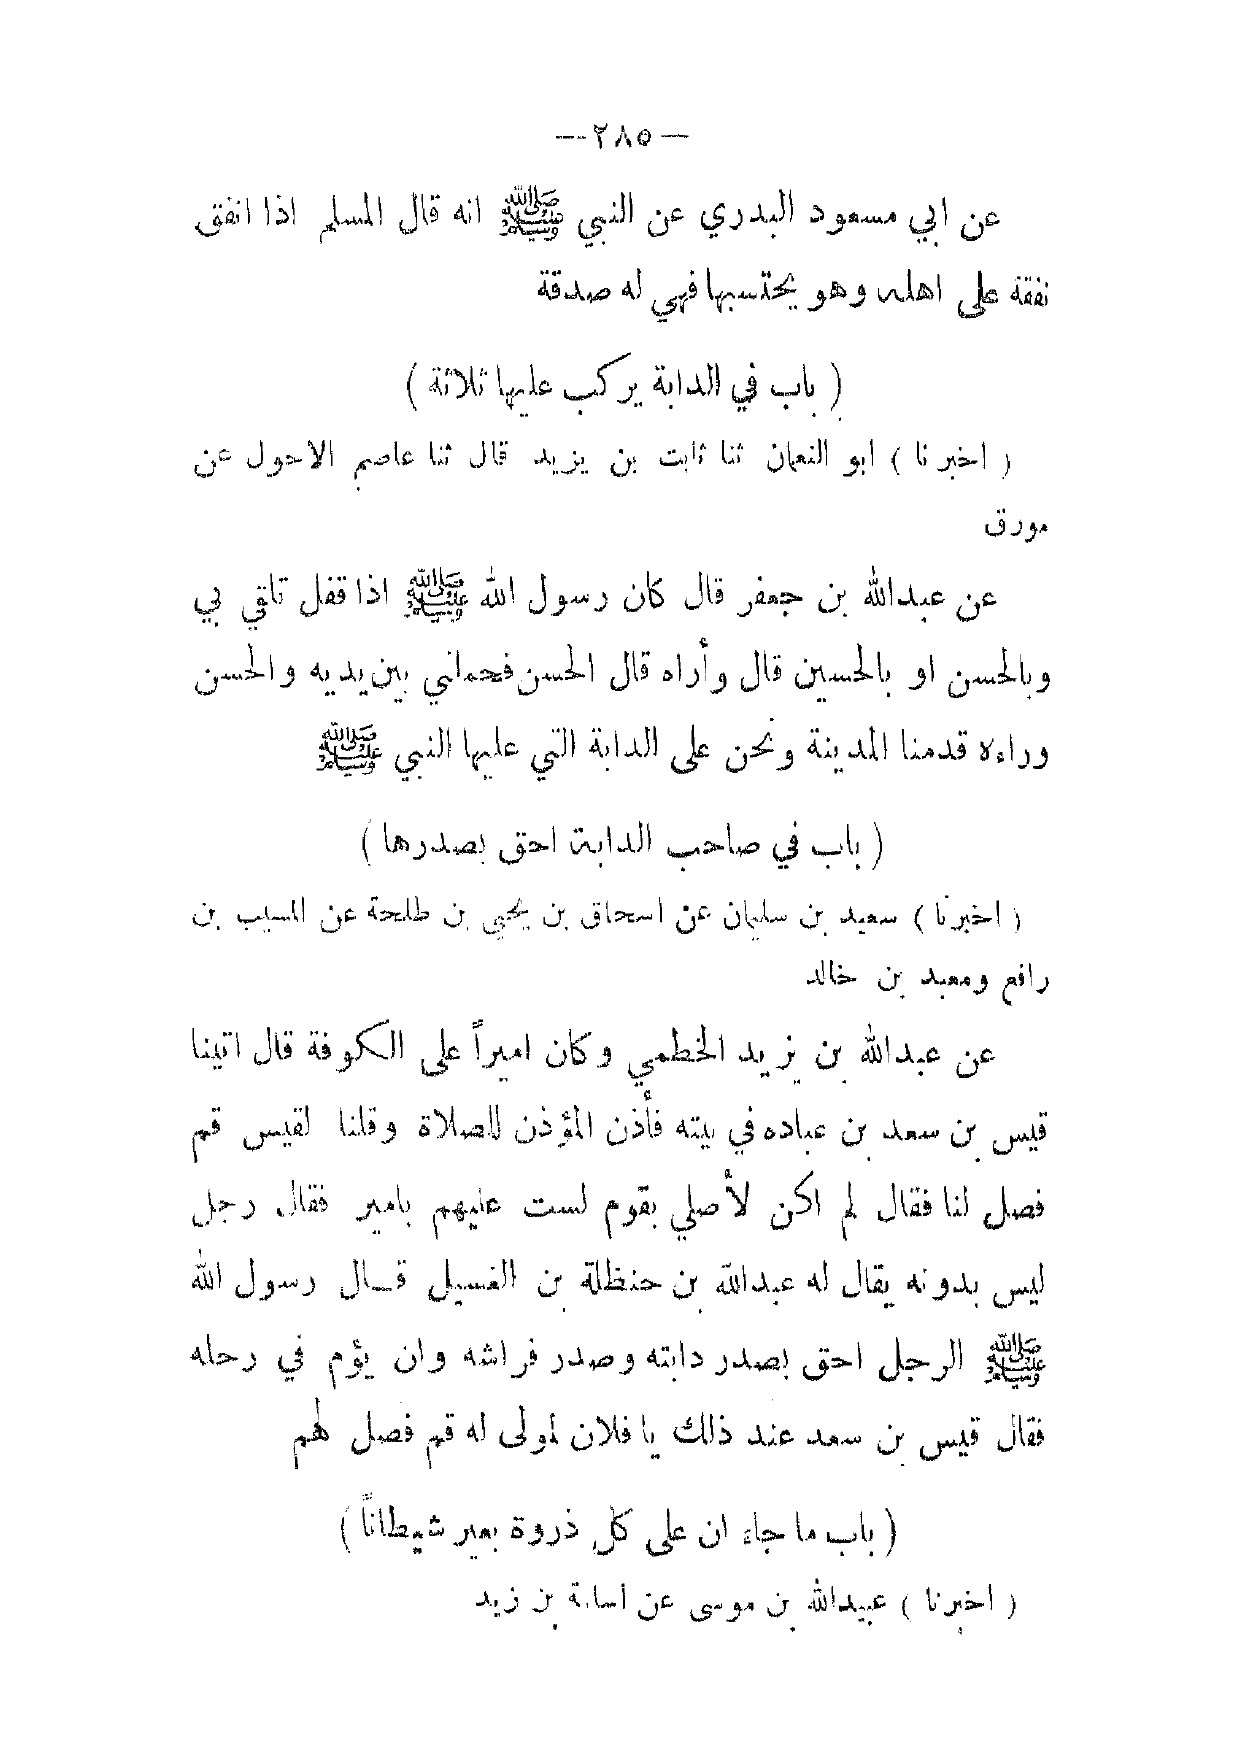 —٢٨٥—
عن ابي مسعود البدري عن النبي ﷺ انه قال المسلم اذا انفق
نفقة على اهله وهو يحتسبها فهي له صدقة
( باب في الدابة يركب عليها ثلاثة )
( اخبرنا ) ابو النعمان ثنا ثابت بن يزيد قال ثنا عاصم الاحول عن
مورق
عن عبدالله بن جعفر قال كان رسول الله ﷺ اذا قفل تلقي بي
وبالحسن او بالحسين قال وأراه قال الحسن فحملني بين يديه والحسن
وراءه قدمنا المدينة ونحن على الدابة التي عليها النبي ﷺ
( باب في صاحب الدابة احق بصدرها )
( اخبرنا ) سعيد بن سليمان عن اسحاق بن يحيى بن طلحة عن المسيب بن
رافع ومعبد بن خالد
عن عبدالله بن يزيد الخطمي وكان اميراً على الكوفة قال اتينا
قيس بن سعد بن عباده في بيته فأذن المؤذن للصلاة وقلنا لقيس قم
فصل لنا فقال لم اكن لأصلي بقوم لست عليهم بامير فقال رجل
ليس بدونه يقال له عبدالله بن حنظلة بن الغسيل قال رسول الله
ﷺ الرجل احق بصدر دابته وصدر فراشه وان يؤم في رحله
فقال قيس بن سعد عند ذلك يا فلان لمولى له قم فصل لهم
( باب ما جاء ان على كل ذروة بعير شيطاناً )
( اخبرنا ) عبيدالله بن موسى عن أسامة بن زيد